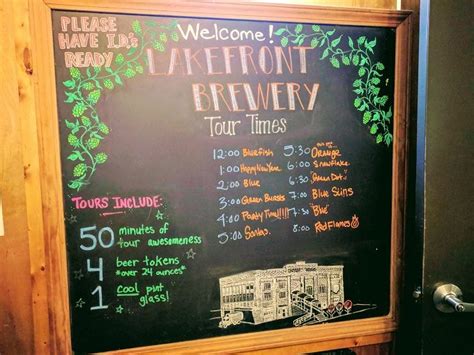 PLEASE
HAVE I.D.'s
READY
Welcome!
LAKEFRONT
BREWERY
Tour Times
12:00 Bluefish
1:00 Happy New Year
2:00 Blue
3:00 Green
4:00 Party Time!!!!
5:00 Santas
5:30 Orange
6:00 Snowflake
6:30 "Green Dot"
7:00 Blue Suns
7:30 "Blue"
8:00 Red Flames
TOURS INCLUDE:
50 minutes of
tour awesomeness
4 beer tokens
*over 24 ounces*
1 cool pint
glass!